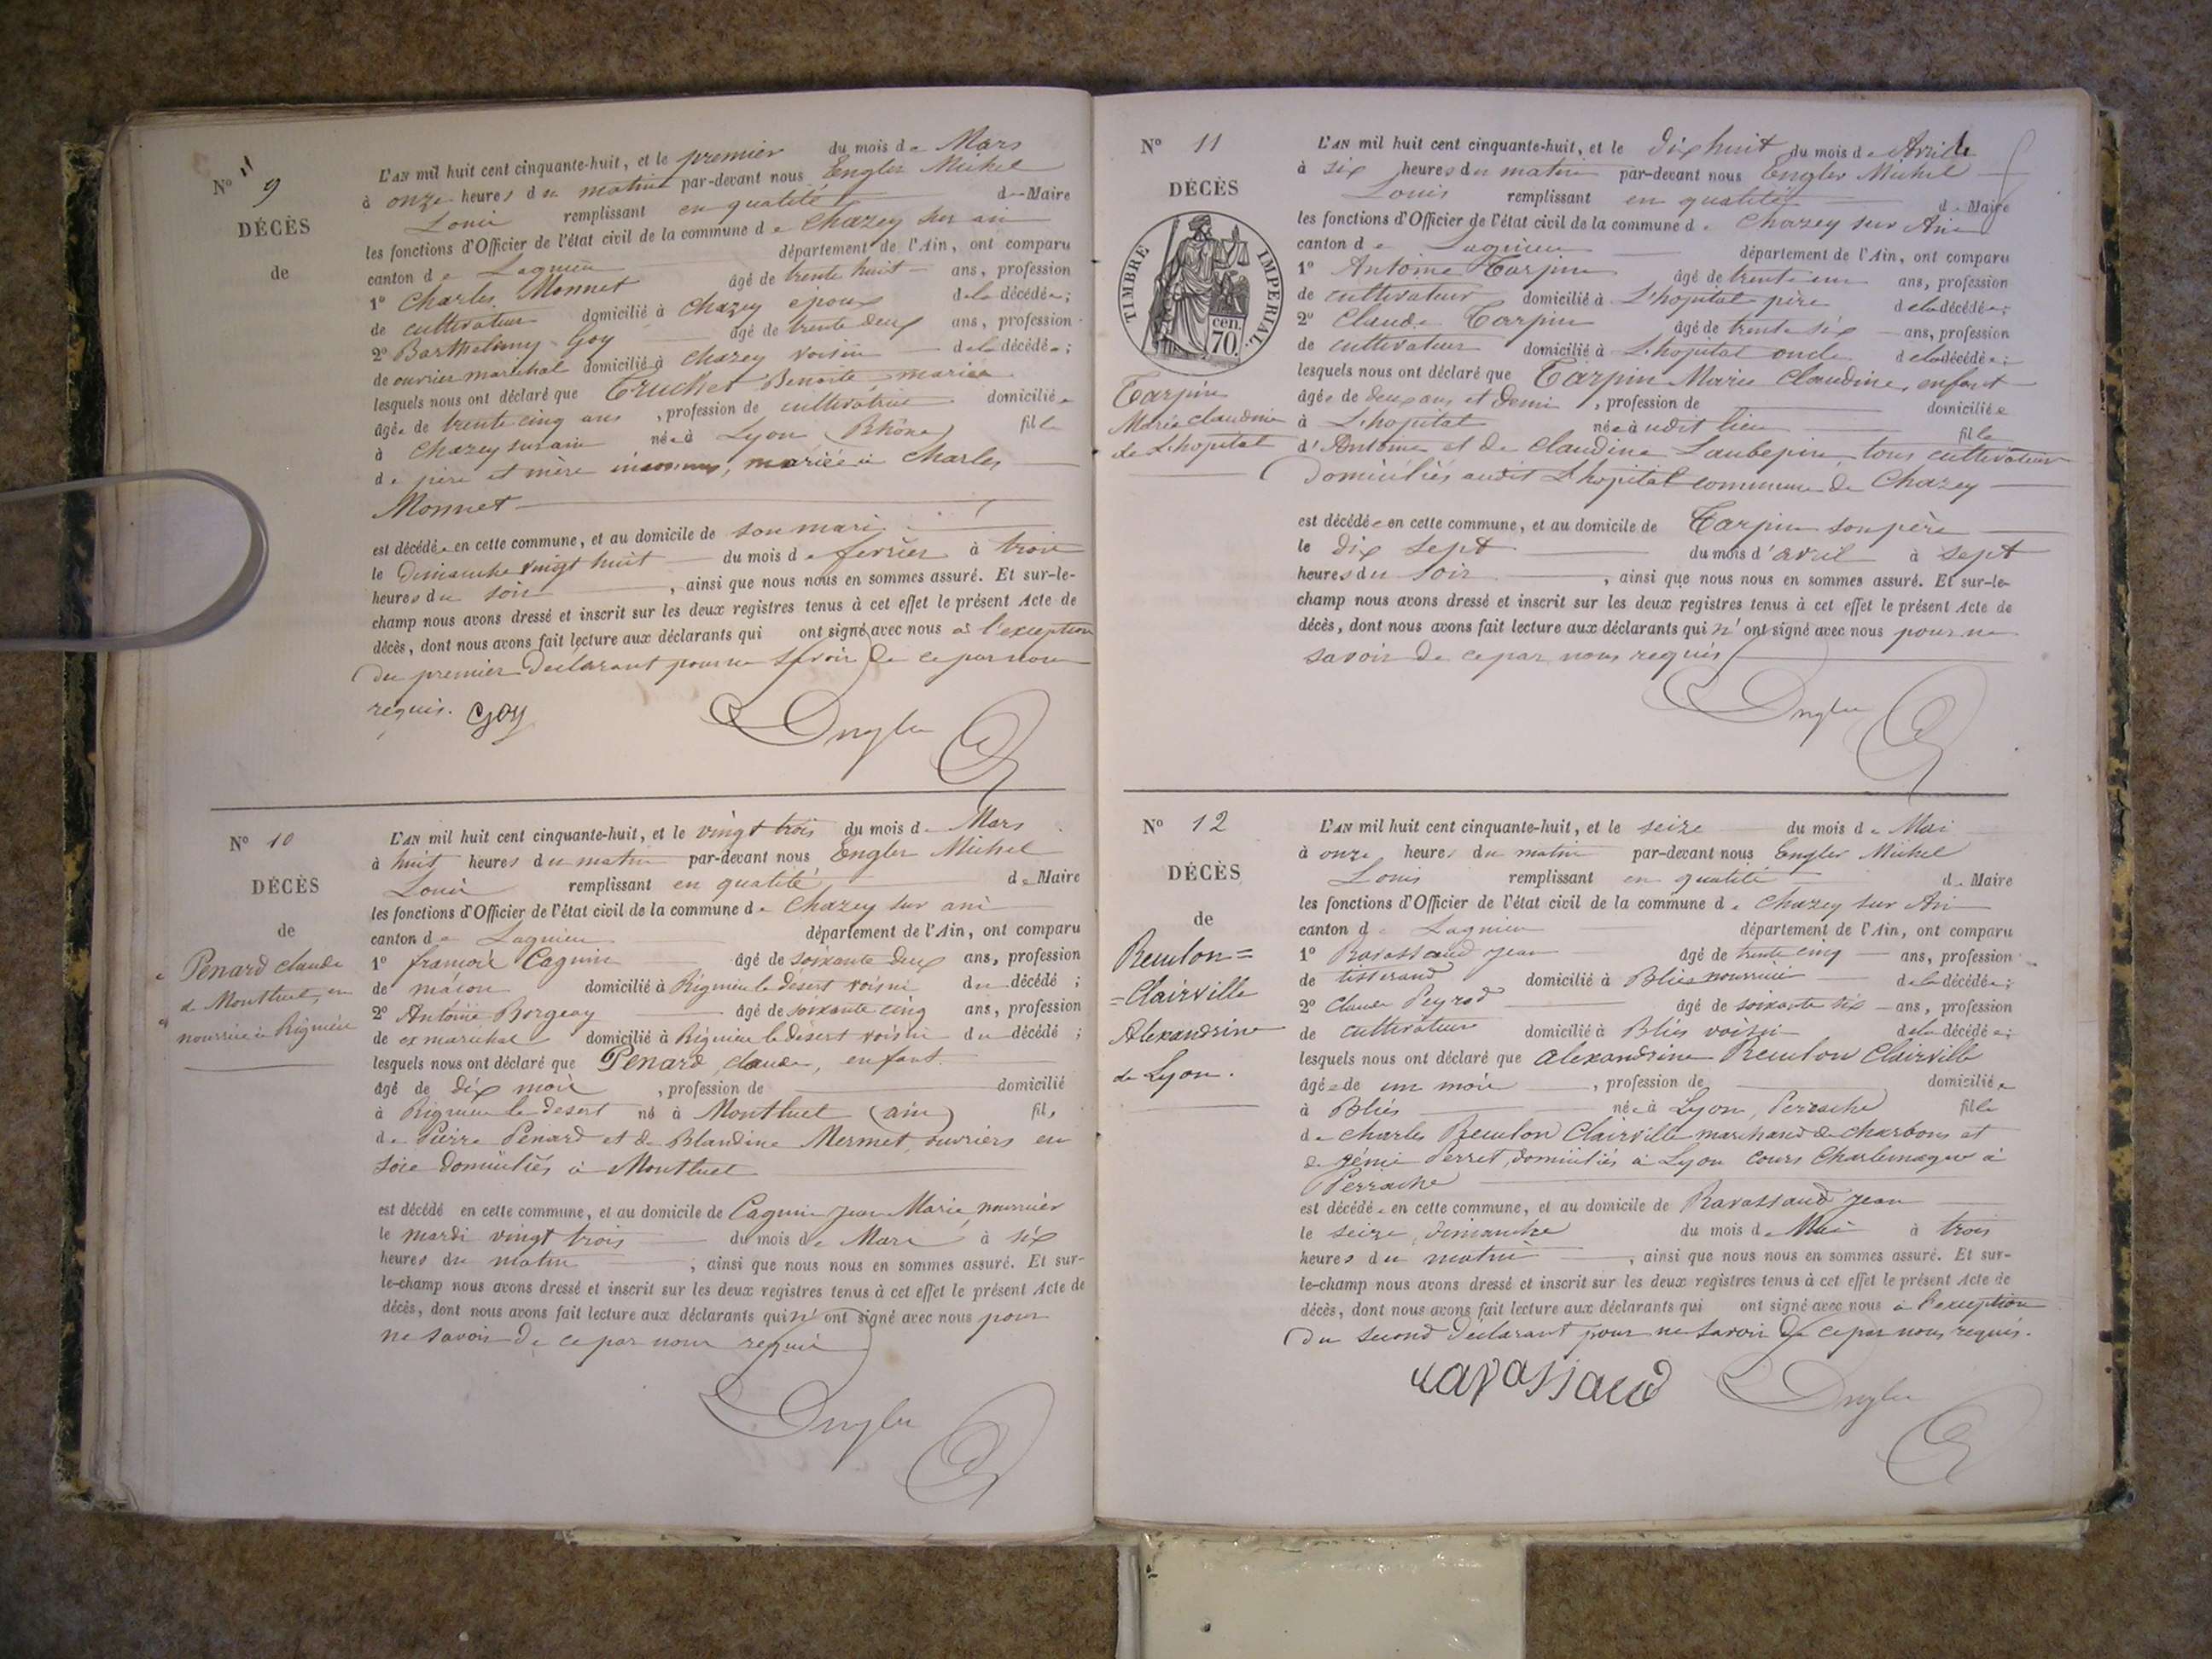 Nº 9
DÉCÈS
de
L'AN mil huit cent cinquante-huit, et le premier du mois de Mars
à onze heures du matin par-devant nous Engler Michel
Louis remplissant en qualité de Maire
les fonctions d'Officier de l'état civil de la commune de Chazey sur ain
canton de Lagnieu département de l'Ain, ont comparu
1º Charles Monnet âgé de trente huit ans, profession
de cultivateur domicilié à Chazey époux de la décédée;
2º Barthelemy Goy âgé de trente deux ans, profession
de ouvrier maréchal domicilié à Chazey voisin de la décédée;
lesquels nous ont déclaré que Truchet Benoite mariée
âgée de trente cinq ans, profession de cultivatrice domiciliée
à Chazey sur ain née à Lyon (Rhône) fille
de père et mère inconnus, mariée à Charles
Monnet
est décédée en cette commune, et au domicile de son mari
le Dimanche vingt huit du mois de février à trois
heures du soir, ainsi que nous nous en sommes assuré. Et sur-le-
champ nous avons dressé et inscrit sur les deux registres tenus à cet effet le présent Acte de
décès, dont nous avons fait lecture aux déclarants qui ont signé avec nous à l'exception
du premier Déclarant pour ne savoir De ce par nous
requis. Goy Engler
Nº 10
DÉCÈS
de
Penard claude
de Montluel, en
nourrice à Rignieu
L'AN mil huit cent cinquante-huit, et le vingt trois du mois de Mars
à huit heures du matin par-devant nous Engler Michel
Louis remplissant en qualité de Maire
les fonctions d'Officier de l'état civil de la commune de Chazey sur ain
canton de Lagnieu département de l'Ain, ont comparu
1º françois Cagnin âgé de soixante deux ans, profession
de maçon domicilié à Rignieu le désert voisin du décédé;
2º Antoine Borgeay âgé de soixante cinq ans, profession
de ex maréchal domicilié à Rignieu le désert voisin du décédé;
lesquels nous ont déclaré que Penard, claude, enfant
âgé de dix mois, profession de domicilié
à Rignieu le desert né à Montluel (ain) fils
de Pierre Penard et de Blandine Mermet, ouvriers en
soie domiciliés à Montluel
est décédé en cette commune, et au domicile de Cagnin Jean Marie, nourricier
le mardi vingt trois du mois de Mars à six
heures du matin; ainsi que nous nous en sommes assuré. Et sur-
le-champ nous avons dressé et inscrit sur les deux registres tenus à cet effet le présent Acte de
décès, dont nous avons fait lecture aux déclarants qui n'ont signé avec nous pour
ne savoir De ce par nous requis
Engler
Nº 11
DÉCÈS
TIMBRE IMPERIAL
70 cen.
Tarpin
Marie claudine
de L'hopital
L'AN mil huit cent cinquante-huit, et le dix huit du mois de Avril
à six heures du matin par-devant nous Engler Michel
Louis remplissant en qualité de Maire
les fonctions d'Officier de l'état civil de la commune de Chazey sur Ain
canton de Lagnieu département de l'Ain, ont comparu
1º Antoine Tarpin âgé de trente un ans, profession
de cultivateur domicilié à L'hopital père de la décédée;
2º Claude Tarpin âgé de trente six ans, profession
de cultivateur domicilié à L'hopital oncle de la décédée;
lesquels nous ont déclaré que Tarpin Marie Claudine, enfant
âgée de deux ans et demi, profession de domiciliée
à L'hopital née à udit lieu fille
d'Antoine et de Claudine Laubepin, tous cultivateurs
domiciliés audit L'hopital commune de Chazey
est décédée en cette commune, et au domicile de Tarpin son père
le dix sept du mois d'avril à sept
heures du soir, ainsi que nous nous en sommes assuré. Et sur-le-
champ nous avons dressé et inscrit sur les deux registres tenus à cet effet le présent Acte de
décès, dont nous avons fait lecture aux déclarants qui n'ont signé avec nous pour ne
savoir De ce par nous requis
Engler
Nº 12
DÉCÈS
de
=Clairville
Alexandrine
de Lyon.
L'AN mil huit cent cinquante-huit, et le seize du mois de Mai
à onze heures du matin par-devant nous Engler Michel
Louis remplissant en qualité de Maire
les fonctions d'Officier de l'état civil de la commune de Chazey sur Ain
canton de Lagnieu département de l'Ain, ont comparu
1º Ravassaud Jean âgé de trente cinq ans, profession
de tisserand domicilié à Bliés nourricier de la décédée;
2º Claude Peyrod âgé de soixante six ans, profession
de cultivateur domicilié à Bliés voisin de la décédée;
lesquels nous ont déclaré que Alexandrine Clairville
âgée de un mois, profession de domiciliée
à Bliés née à Lyon, Perrache fille
de Charles Clairville marchand de charbons et
de Perret, domiciliés à Lyon cours Charlemagne à
Perrache
est décédée en cette commune, et au domicile de Ravassaud Jean
le seize, dimanche du mois de Mai à trois
heures du matin, ainsi que nous nous en sommes assuré. Et sur-
le-champ nous avons dressé et inscrit sur les deux registres tenus à cet effet le présent Acte de
décès, dont nous avons fait lecture aux déclarants qui ont signé avec nous à l'exception
du second Déclarant pour ne savoir De ce par nous requis.
ravassaud Engler